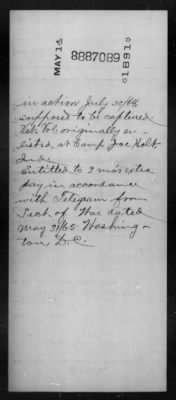 MAY 14
8887089
c1891s
in action July 30/64
supposed to be captured.
Vet. Vol. originally en-
listed at Camp Joe Holt,
Ind.
Entitled to 3 mo's extra
pay in accordance
with Telegram from
Sect. of War dated
May 31/65 Washing-
ton D. C.